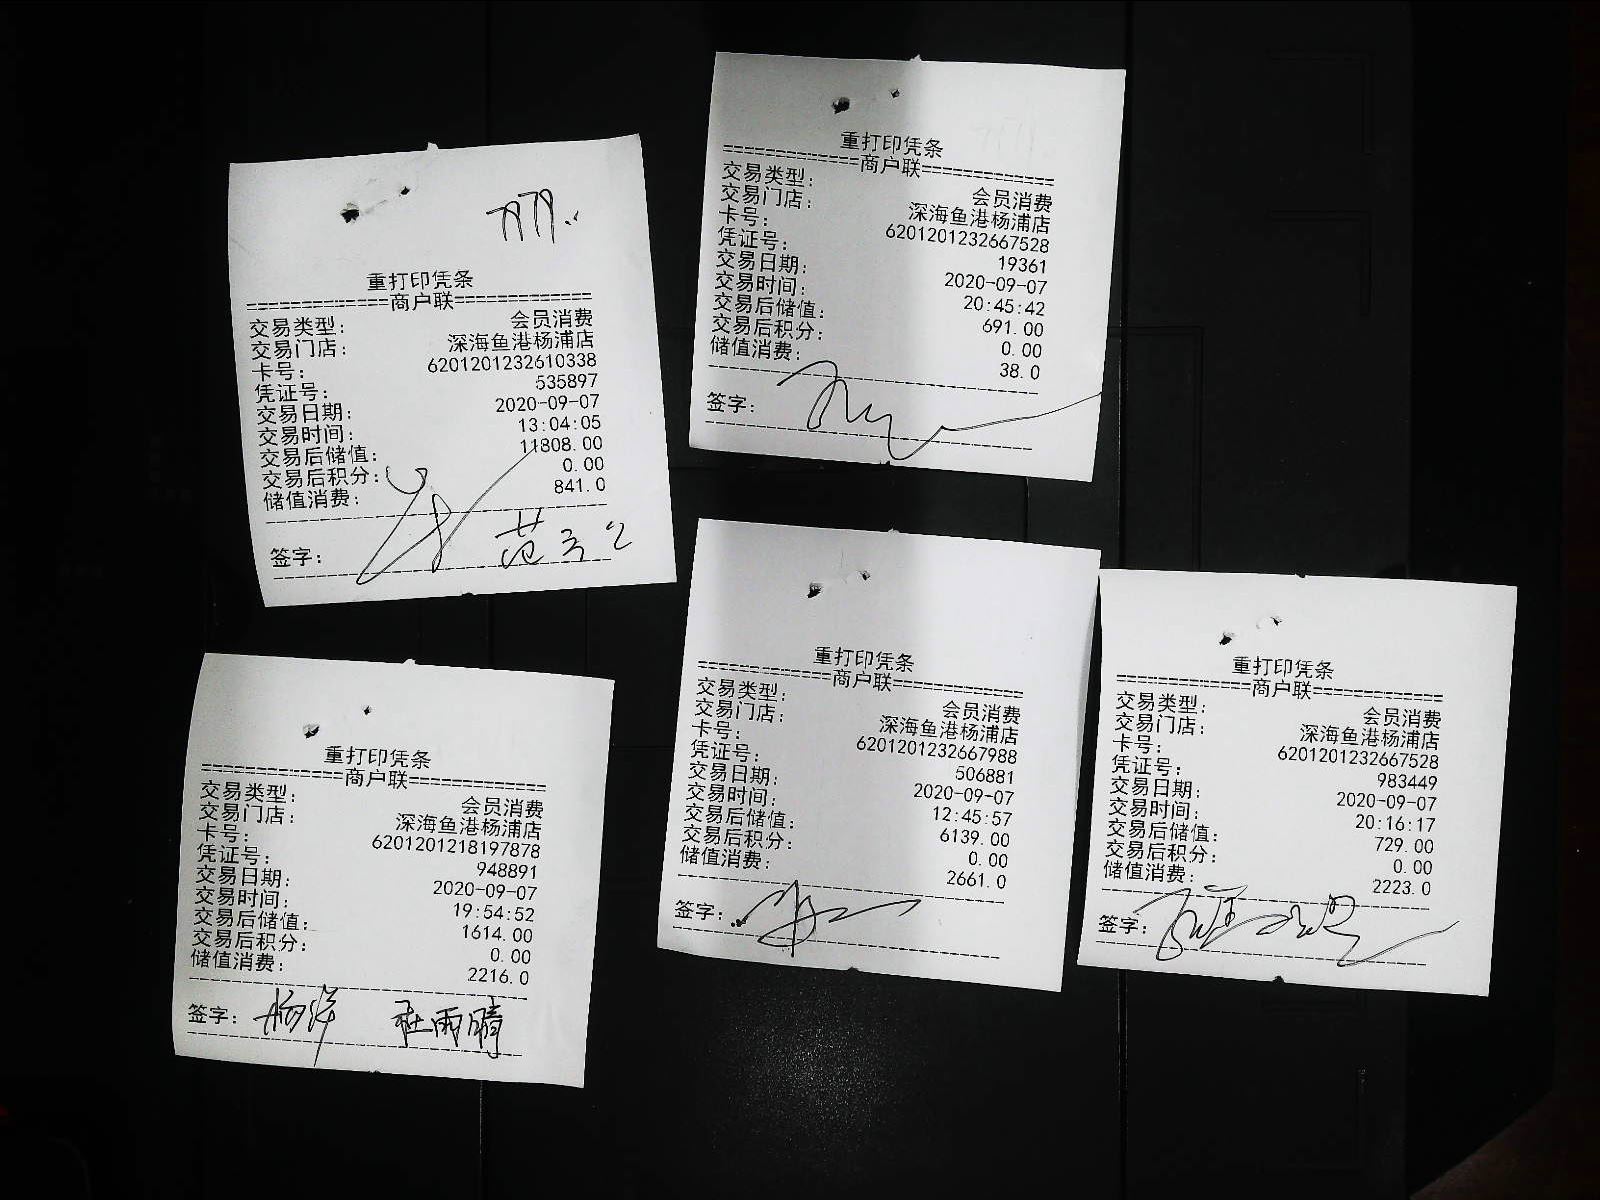 重打印凭条
=============商户联=============
交易类型： 会员消费
交易门店： 深海鱼港杨浦店
卡号： 6201201232610338
凭证号： 535897
交易日期： 2020-09-07
交易时间： 13:04:05
交易后储值： 11808.00
交易后积分： 0.00
储值消费： 841.0
签字：
重打印凭条
=============商户联=============
交易类型： 会员消费
交易门店： 深海鱼港杨浦店
卡号： 6201201232667528
凭证号： 19361
交易日期： 2020-09-07
交易时间： 20:45:42
交易后储值： 691.00
交易后积分： 0.00
储值消费： 38.0
签字：
重打印凭条
=============商户联=============
交易类型： 会员消费
交易门店： 深海鱼港杨浦店
卡号： 6201201218197878
凭证号： 948891
交易日期： 2020-09-07
交易时间： 19:54:52
交易后储值： 1614.00
交易后积分： 0.00
储值消费： 2216.0
签字： 杨洋 杜雨晴
重打印凭条
=============商户联=============
交易类型： 会员消费
交易门店： 深海鱼港杨浦店
卡号： 6201201232667988
凭证号： 506881
交易日期： 2020-09-07
交易时间： 12:45:57
交易后储值： 6139.00
交易后积分： 0.00
储值消费： 2661.0
签字：
重打印凭条
=============商户联=============
交易类型： 会员消费
交易门店： 深海鱼港杨浦店
卡号： 6201201232667528
凭证号： 983449
交易日期： 2020-09-07
交易时间： 20:16:17
交易后储值： 729.00
交易后积分： 0.00
储值消费： 2223.0
签字：